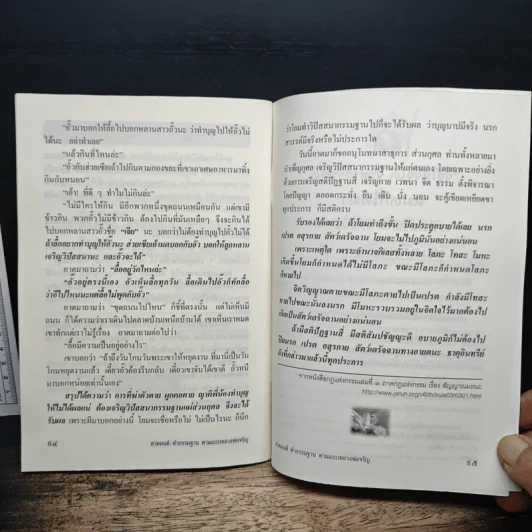 "อั๊วมาบอกให้ลื้อไปบอกหลานสาวอั๊วนะ ว่าทำบุญไปให้อั๊วไม่
ได้นะ อย่าทำเลย"
"แล้วกินที่ไหนล่ะ"
"อั๊วกับฮวยเซียเจ้าไปกินตามกองขยะที่เขาเอาเศษอาหารมาทิ้ง
กินกับหนอน"
"เอ้า! ที่ดี ๆ ทำไมไม่กินล่ะ"
"ไม่มีใครให้กิน มีอีกพวกหนึ่งชุดถนนเหมือนกัน แต่เขามี
ข้าวกิน พวกอั๊วไม่มีข้าวกิน ต้องไปกินที่มันเหลือๆ จึงจะกินได้
ไปบอกหลานสาวอั๊วชื่อ "เจีย" นะ บอกว่าไม่ต้องทำบุญไปให้อั๊วไม่ได้
ถ้าลื้ออยากทำบุญให้อั๊วนะ ฮวยเซียเข้ามาบอกกับอั๊ว บอกให้ลูกหลาน
เจริญวิปัสสนานะ และอั๊วจะได้"
อาตมาถามว่า "ลื้ออยู่วัดไหนล่ะ"
"อั๊วอยู่ตรงนี้เอง อั๊วเห็นลื้อทุกวัน ลื้อเดินไปอั๊วก็ทักลื้อ
ว่าอีไปไหนนะแต่ลื้อไม่พูดกับอั๊ว"
อาตมาถามว่า "ขุดถนนไปไหน" ก็ชี้ที่ตรงนั้น แต่ไม่เห็นมี
ถนน ก็ได้ความว่าเราเดินไปตลาดบ้านเหนือบ้านใต้ เขาเห็นเราหมด
เขาทักแต่เราไม่รู้เรื่อง อาตมาถามต่อไปว่า
"ลื้อมีความเป็นอยู่อย่างไร"
เขาบอกว่า "ถ้าถึงวันโกนวันพระเขาให้หยุดงาน ที่มานี่เป็นวัน
โกนหยุดงานแล้ว เดี๋ยวอั๊วต้องรีบกลับ เดี๋ยวเขาจับได้เขาตี อั๊วหนี
มาบอกหน่อยเท่านั้นเอง"
สรุปได้ความว่า การที่ฆ่าตัวตาย ผูกคอตาย ญาติพี่น้องทำบุญ
ให้ไม่ได้ผลแน่ ต้องเจริญวิปัสสนากรรมฐานแผ่ส่วนกุศล จึงจะได้
รับผล เพราะผีมาบอกอย่างนี้ โยมจะเชื่อหรือไม่ ไม่เป็นไรนะ ก็นึก
๘๔ สวดมนต์ ทำกรรมฐาน ตามแบบหลวงพ่อจรัญ
ว่าโยมทำวิปัสสนากรรมฐานไปก็จะได้รับผล ว่าบุญบาปมีจริง นรก
สวรรค์มีจริงหรือไม่ประการใด
วันนี้อาตมาก็ขออนุโมทนาสาธุการ ส่วนกุศล ท่านทั้งหลายมา
บำเพ็ญกุศล เจริญวิปัสสนากรรมฐานให้แก่ตนเอง โดยเฉพาะอย่างยิ่ง
ด้วยการเจริญสติปัฏฐานสี่ เจริญกาย เวทนา จิต ธรรม ตั้งพิจารณา
โดยปัญญา ตลอดกระทั่ง ยืน เดิน นั่ง นอน จะคู้เขียดเหยียดขา
ทุกประการ ก็มีสติครบ
รับรองได้เลยว่า ถ้าโยมทำถึงขั้น ปิดประตูอบายได้เลย นรก
เปรต อสุรกาย สัตว์เดรัจฉาน โยมจะไม่ไปภูมินั้นอย่างแน่นอน
เพราะเหตุใด เพราะอำนาจกิเลสทั้งหลาย โลภะ โทสะ โมหะ
เกิดขึ้นโยมก็กำหนดได้ไม่มีโลภะ ขณะมีโลภะก็กำหนดโลภะ
ก็หายไป
จิตวิญญาณตายขณะมีโลภะตายไปเป็นเปรต กำลังมีโทสะ
ตายไปขณะนั้นลงนรก มีโมหะรวบรวมอยู่ในจิตใจไว้มากต้องไป
เกิดเป็นสัตว์เดรัจฉานอย่างแน่นอน
ถ้ามีสติปัฏฐานสี่ มีสติสัมปชัญญะดี อบายภูมิก็ไม่ต้องไป
ปิดนรก เปรต อสุรกาย สัตว์เดรัจฉานทางอายตนะ ธาตุอินทรีย์
ดังที่อธิบายมาแล้วนี้ทุกประการ
จากหนังสือกฎแห่งกรรมเล่มที่ ๓ ภาคกฎแห่งกรรม เรื่อง
http://www.jarun.org/v6/th/lrule03r0301.html
สวดมนต์ ทำกรรมฐาน ตามแบบหลวงพ่อจรัญ ๘๕